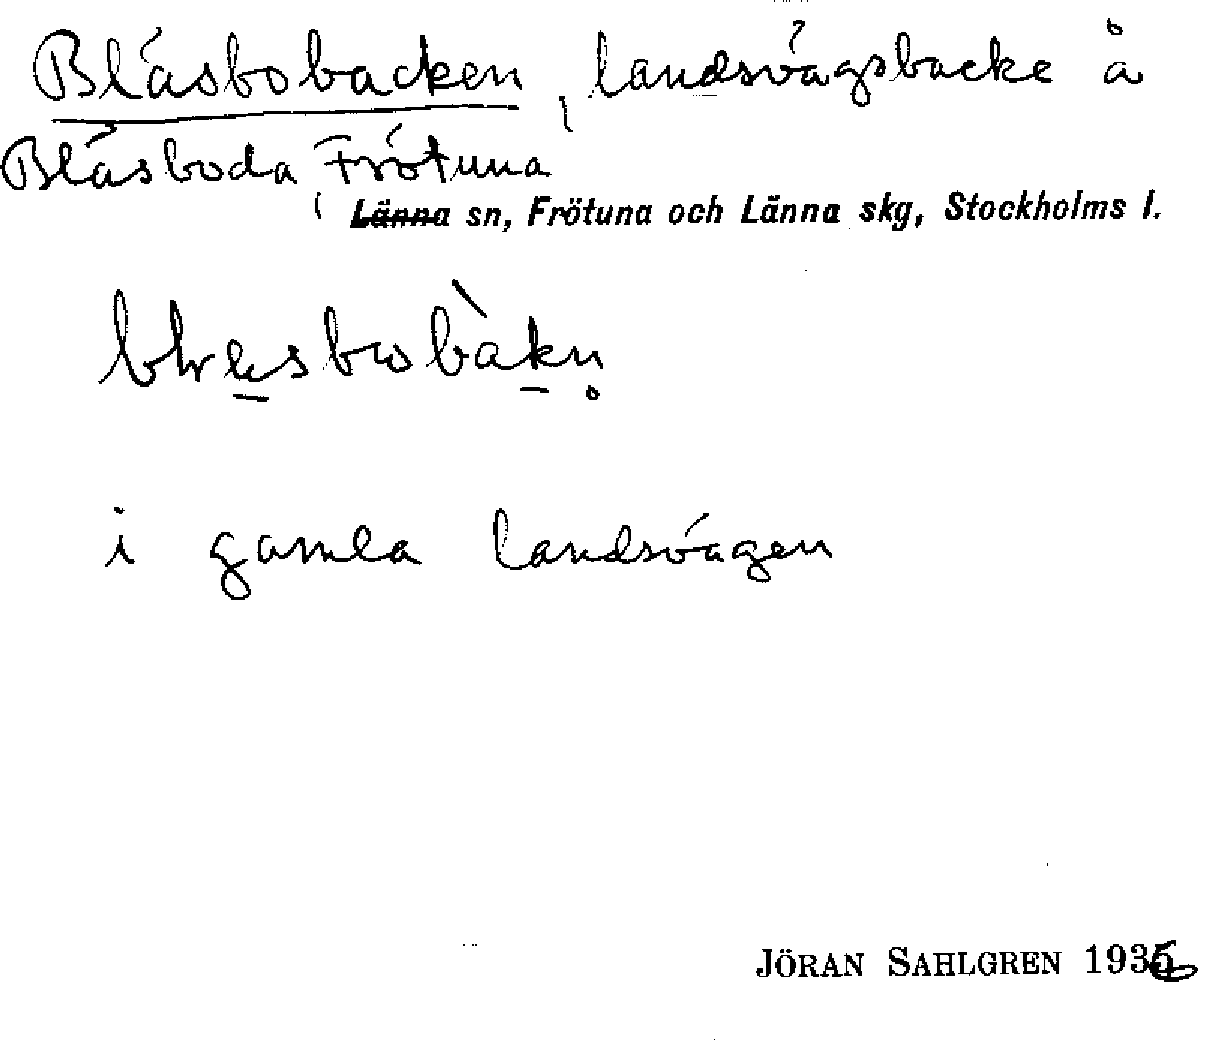 Bläsbobacken, landsvägsbacke å
Bläsboda, Frötuna
Länna sn, Frötuna och Länna skg, Stockholms l.
i gamla landsvägen
JÖRAN SAHLGREN 1936